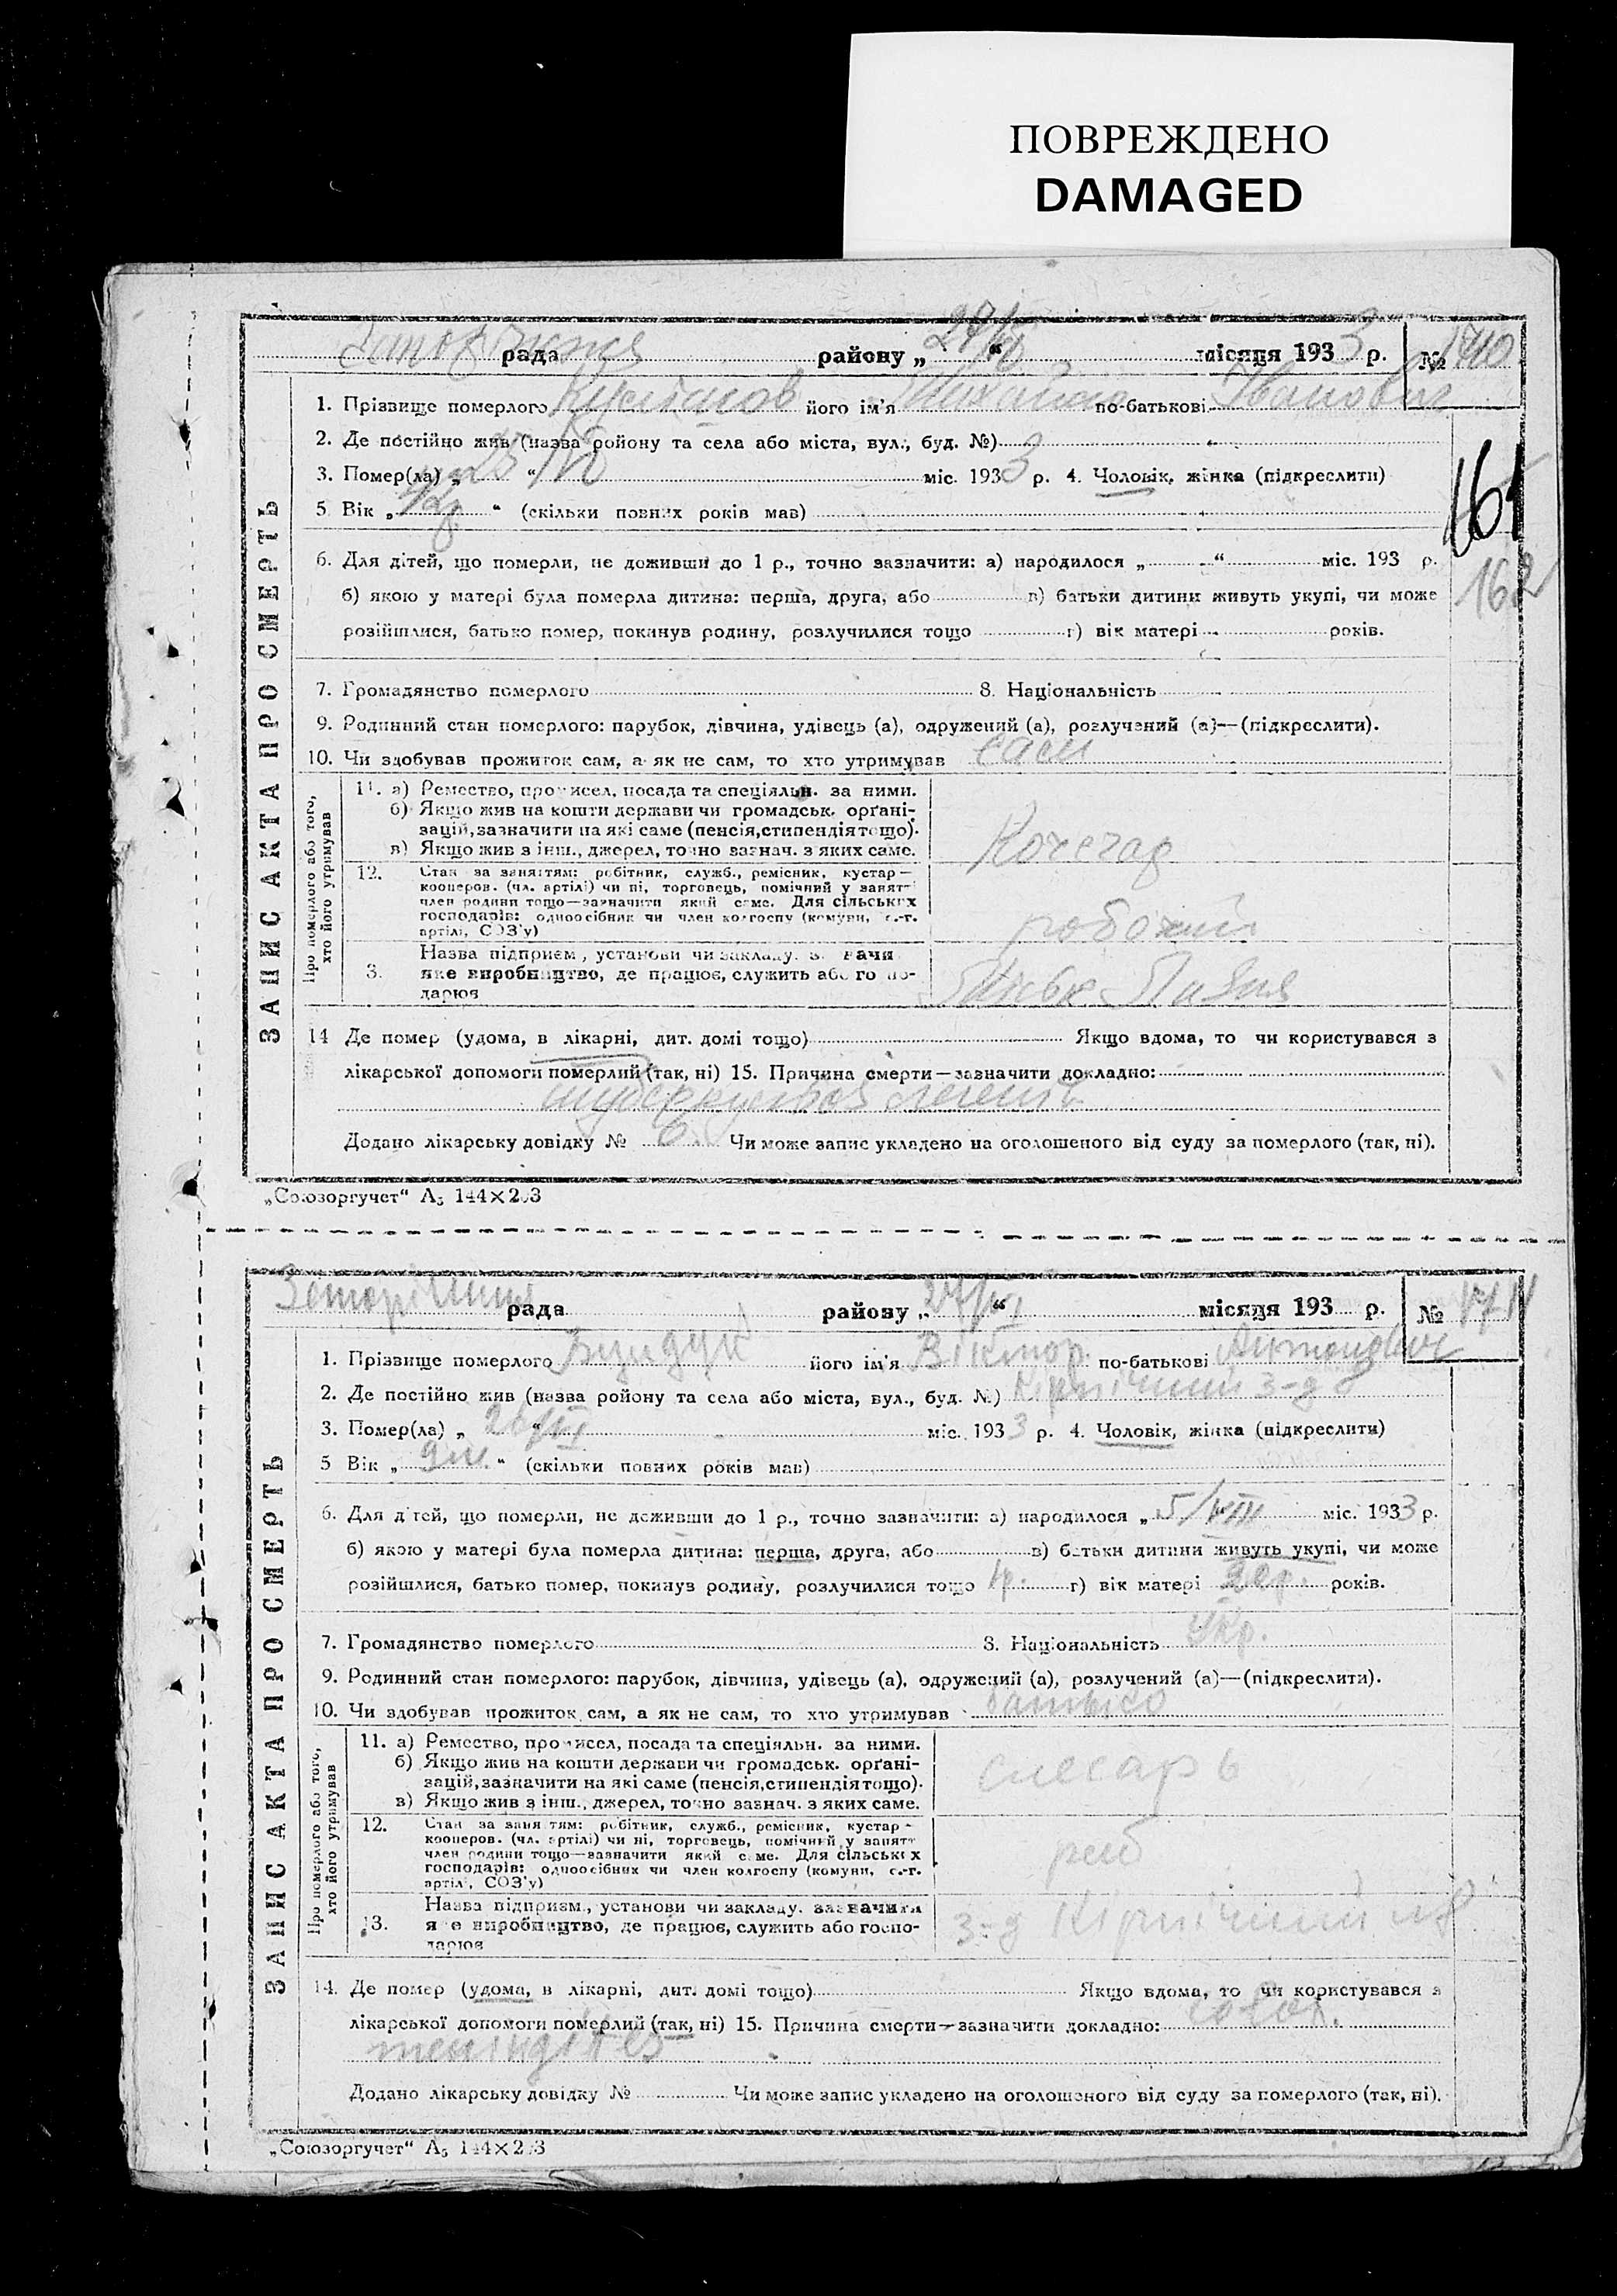 ПОВРЕЖДЕНО
DAMAGED
рада району „ 29/ “ місяця 1933 р. № 1710
1. Прізвище померлого його ім'я Михайло по-батькові Іванович
2. Де постійно жив (назва ройону та села або міста, вул., буд. №)
3. Помер(ла) „ “ міс. 1933 р. 4. Чоловік, жінка (підкреслити)
5 Вік „ “ (скільки повних років мав)
161
162
6. Для дітей, що померли, не доживши до 1 р., точно зазначити: а) народилося „ “ міс. 193 р.
б) якою у матері була померла дитина: перша, друга, або в) батьки дитини живуть укупі, чи може
розійшлися, батько помер, покинув родину, розлучилися тощо г) вік матері років.
7. Громадянство померлого 8. Національність
9. Родинний стан померлого: парубок, дівчина, удівець (а), одружений (а), розлучений (а)—(підкреслити).
10. Чи здобував прожиток сам, а як не сам, то хто утримував сам
ЗАПИС АКТА ПРО СМЕРТЬ
Про померлого або того, хто його утримував
11. а) Ремество, промисел, посада та спеціяльн. за ними.
б) Якщо жив на кошти держави чи громадськ. орґані-
зацій, зазначити на які саме (пенсія, стипендія тощо).
в) Якщо жив з інш., джерел, точно зазнач. з яких саме.
Кочегар
12. Стан за заняттям: робітник, служб., ремісник, кустар—
кооперов. (чл. артілі) чи ні, торговець, помічний у занятт
член родини тощо—зазначити який саме. Для сільських
господарів: одноосібник чи член колгоспу (комуни, с.-г.
артілі, СОЗ'у)
робочий
3. Назва підприєм., установи чи закладу. зазначи
яке виробництво, де працює, служить або го по-
дарює
14 Де помер (удома, в лікарні, дит. домі тощо) Якщо вдома, то чи користувався з
лікарської допомоги померлий (так, ні) 15. Причина смерти—зазначити докладно:
туберкульоз легенів
Додано лікарську довідку № Чи може запис укладено на оголошеного від суду за померлого (так, ні).
„Союзоргучет“ А5 144×203
рада району „ 27/VI “ місяця 193 р. № 1711
1. Прізвище померлого його ім'я Віктор по-батькові Антонович
2. Де постійно жив (назва ройону та села або міста, вул., буд. №) Кірпічний з-д
3. Помер(ла) „ 26/VI “ міс. 1933 р. 4. Чоловік, жінка (підкреслити)
5 Вік „ 9 м. “ (скільки повних років мав)
6. Для дітей, що померли, не доживши до 1 р., точно зазначити: а) народилося „ 5/VIII міс. 1933 р.
б) якою у матері була померла дитина: перша, друга, або в) батьки дитини живуть укупі, чи може
розійшлися, батько помер, покинув родину, розлучилися тощо 1р. г) вік матері років.
7. Громадянство померлого 8. Національність Укр.
9. Родинний стан померлого: парубок, дівчина, удівець (а), одружений (а), розлучений (а)—(підкреслити).
10. Чи здобував прожиток сам, а як не сам, то хто утримував батько
ЗАПИС АКТА ПРО СМЕРТЬ
Про померлого або того, хто його утримував
11. а) Ремество, промисел, посада та спеціяльн. за ними.
б) Якщо жив на кошти держави чи громадськ. орґані-
зацій, зазначити на які саме (пенсія, стипендія тощо).
в) Якщо жив з інш., джерел, точно зазнач. з яких саме.
слесарь
12. Стан за заняттям: робітник, служб., ремісник, кустар—
кооперов. (чл. артілі) чи ні, торговець, помічний у занятт
член родини тощо—зазначити який саме. Для сільських
господарів: одноосібник чи член колгоспу (комуни, с.-г.
артілі, СОЗ'у)
роб
13. Назва підприєм., установи чи закладу. зазначити
яке виробництво, де працює, служить або госпо-
дарює
з-д Кірпічний
14. Де помер (удома, в лікарні, дит. домі тощо) Якщо вдома, то чи користувався з
лікарської допомоги померлий (так, ні) 15. Причина смерти—зазначити докладно:
Додано лікарську довідку № Чи може запис укладено на оголошеного від суду за померлого (так, ні).
„Союзоргучет“ А5 144×203